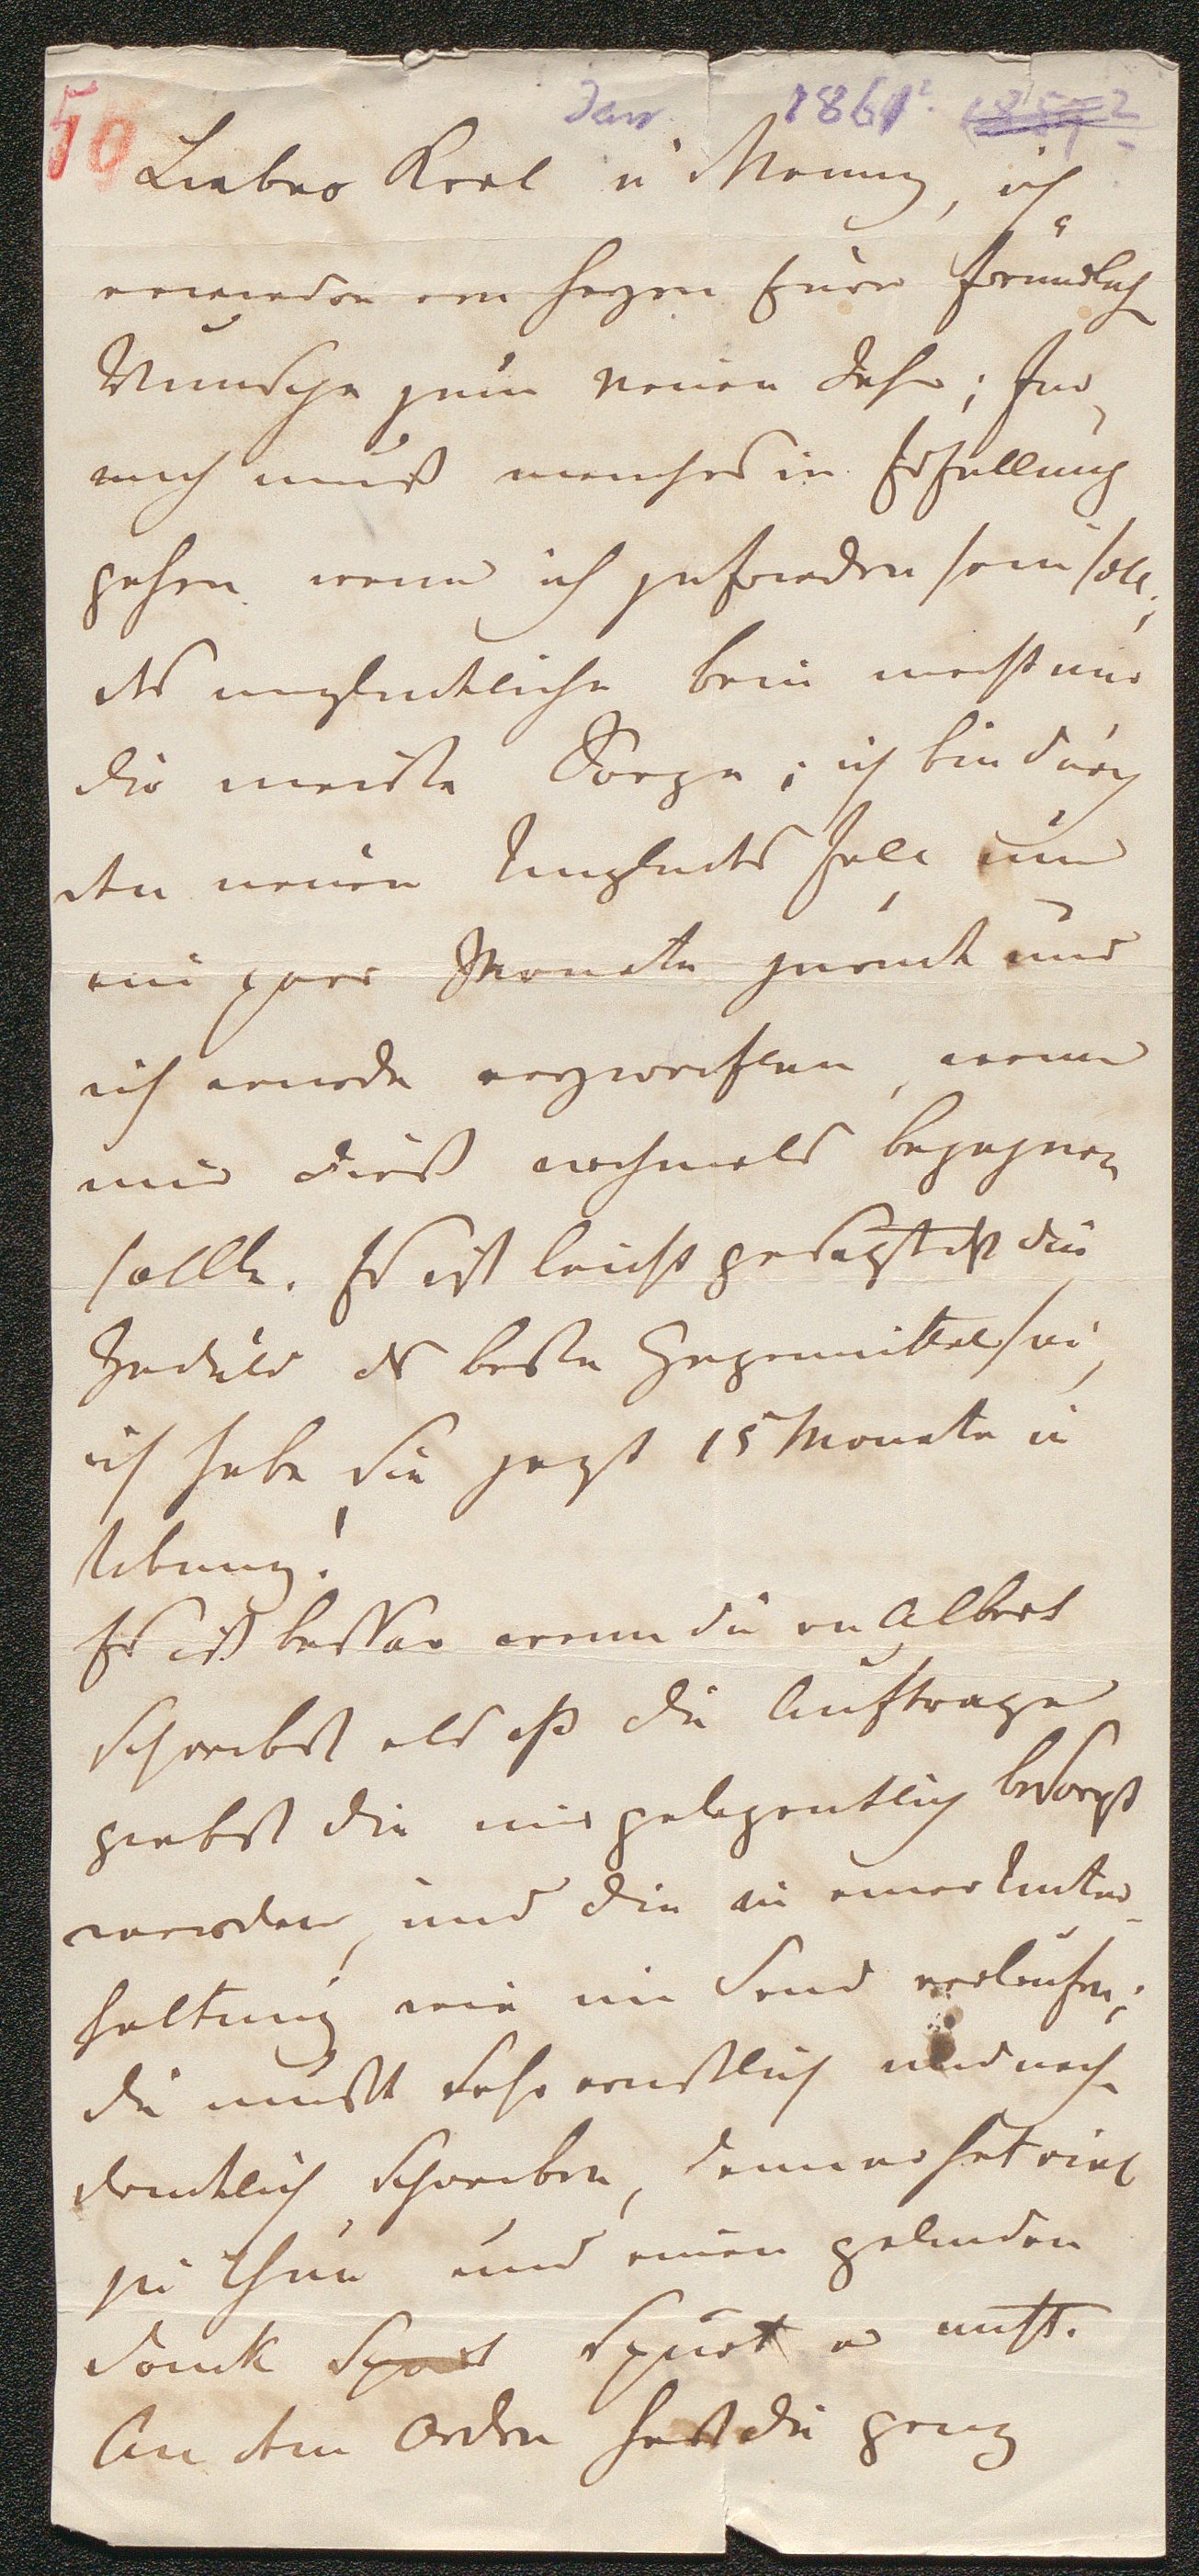 56 Jan 1861? 1857?
Lieber Karl u Manny, ich
erwiedre von Herzen Eure freundlich
Wunsche zum neuen Jahr; fur
mich muß manches in Erfullung
gehen wenn ich zufrieden sein soll;
das ungluckliche Bein macht mir
die meiste Sorge; ich bin durch
den neuen Unglucks Fall um
ein paar Monate zuruck und
ich wurde verzweiflen, wenn
mir dieß nochmals begegnen
sollte. Es ist leicht gesagt daß die
Geduld das beste Gegenmittel sei,
ich habe sie jezt 15 Monate in
Uebung!
Es ist besser wenn du an Albert
schreibst als daß du Auftrage
giebst die nur gelegentlich besorgt
werden, und die in einer Unter-
haltung wie im Sand verlaufen;
du mußt sehr ernstlich und nach-
drucklich schreiben, denn er hat viel
zu thun und einen gelinden
Druck Spurt spurt er nicht.
An den Orden hast du ganz